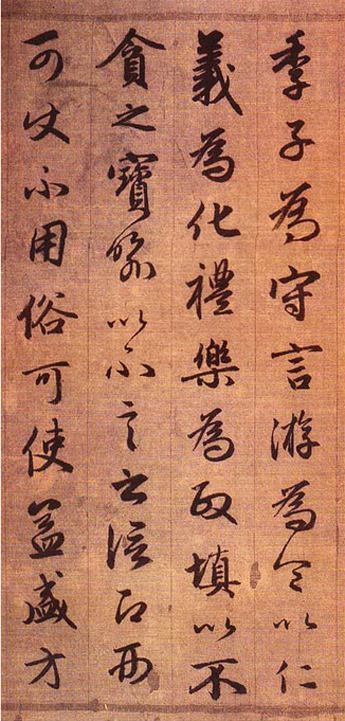 季子為守言游為令以仁
義為化禮樂為政填以不
貪之寶以不言之信而
可不用俗可使益盛方